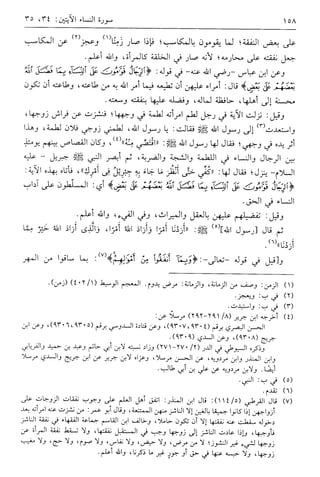 ١٥٨
سورة النساء الآيتين: ٣٤، ٣٥
على بعض النفقة؛ لما يقومون بالمكاسب؛ فإذا صار زمنًا(١) وعجز(٢) عن المكاسب
جعل نفقته على محارمه؛ لأنه صار في الخلقة كالمرأة، والله أعلم.
وعن ابن عباس -رضي الله عنه- في قوله: ﴿الرِّجَالُ قَوَّامُونَ عَلَى النِّسَاءِ بِمَا فَضَّلَ اللَّهُ
بَعْضَهُمْ عَلَى بَعْضٍ﴾ قال: أمراء عليهن أن تطيعه فيما أمر الله به من طاعته، وطاعته أن تكون
محسنة إلى أهلها، حافظة لماله، وفضله عليها بنفقته وسعته.
وقيل: نزلت الآية في رجل لطم امرأته لطمة في وجهها؛ فنشزت عن فراش زوجها،
واستعدت(٣) إلى رسول الله ﷺ فقالت: يا رسول الله، لطمني زوجي فلان لطمة، وهذا
أثر يده في وجهي؛ فقال لها رسول الله ﷺ: «اقْتَصِّي مِنْهُ»(٤)، وكان القصاص بينهم يومئذٍ
بين الرجال والنساء في اللطمة والشجة والضربة، ثم أبصر النبي ﷺ جبريل - عليه
السلام - ينزل؛ فقال لها: «كُفِّي حَتَّى أَنْظُرَ مَا جَاءَ بِهِ جِبْرِيلُ فِي أَمْرِكِ»، فأتاه بهذه الآية:
﴿الرِّجَالُ قَوَّامُونَ عَلَى النِّسَاءِ بِمَا فَضَّلَ اللَّهُ بَعْضَهُمْ عَلَى بَعْضٍ﴾ أي: المسلّطون على آداب
النساء في الحق.
وقيل: تفضيلهم عليهن بالعقل والميراث، وفي الفيء، والله أعلم.
ثم قال [رسول الله](٥) ﷺ: «أَرَدْنَا أَمْرًا، وَأَرَادَ اللهُ أَمْرًا، وَالَّذِي أَرَادَ اللهُ خَيْرٌ مِمَّا
أَرَدْنَا»(٦).
و[قيل في قوله -تعالى-: ﴿وَبِمَا أَنْفَقُوا مِنْ أَمْوَالِهِمْ﴾(٧): بما ساقوا من المهر
(١) الزمن: وصف من الزمانة، والزمانة: مرض يدوم. المعجم الوسيط (٤٠٢/١) (زمن).
(٢) في ب: ويعجز.
(٣) في ب: واستبدت.
(٤) أخرجه ابن جرير (٢٩١/٨-٢٩٢) مرسلًا عن:
الحسن البصري برقم (٩٣٠٤، ٩٣٠٧)، وعن قتادة السدوسي برقم (٩٣٠٥، ٩٣٠٦)، وعن ابن
جريج (٩٣٠٨)، وعن السدي (٩٣٠٩)
وذكره السيوطي في الدر (٢٧٠/٢-٢٧١) وزاد نسبته لابن أبي حاتم وعبد بن حميد والفريابي
وابن المنذر وابن مردويه، عن الحسن مرسلا، وعزاه لابن جرير عن ابن جريج والسدي مرسلا
أيضًا. ولابن مردويه عن علي بن أبي طالب.
(٥) في ب: النبي.
(٦) تقدم.
(٧) قال القرطبي (١١٤/٥): قال ابن المنذر: اتفق أهل العلم على وجوب نفقات الزوجات على
أزواجهن إذا كانوا جميعًا بالغين إلا الناشز منهن الممتنعة، وقال أبو عمر: من نشزت عنه امرأته بعد
دخوله سقطت عنه نفقتها إلا أن تكون حاملا، وخالف ابن القاسم جماعة الفقهاء في نفقة الناشز
فأوجبها، وإذا عادت الناشز إلى زوجها وجب في المستقبل نفقتها، ولا تسقط نفقة المرأة عن
زوجها لشيء غير النشوز؛ لا من مرض، ولا حيض، ولا نفاس، ولا صوم، ولا حج، ولا مغيب
زوجها، ولا حبسه عنها في حق أو جور غير ما ذكرنا، والله أعلم.